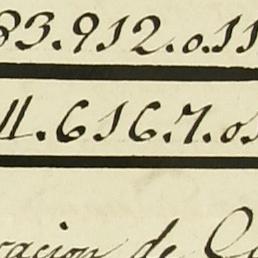 83.912.011
11.616.7.01
racion de